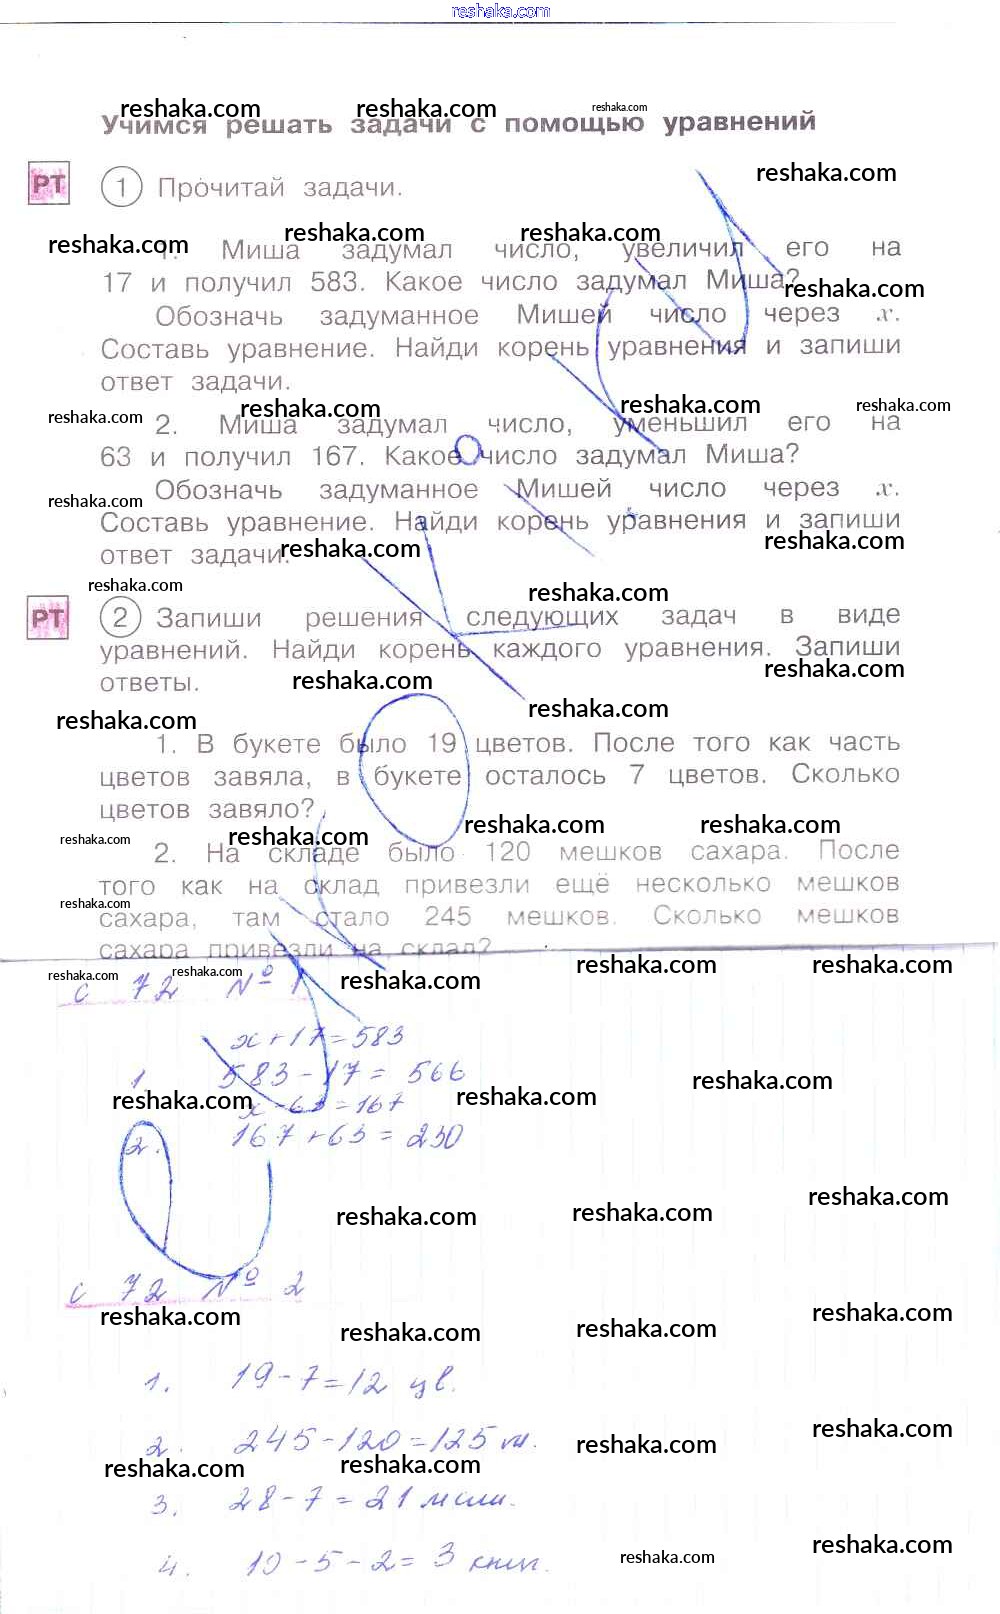 reshaka.com
reshaka.com reshaka.com reshaka.com
Учимся решать задачи с помощью уравнений
reshaka.com
РТ 1 Прочитай задачи.
reshaka.com reshaka.com reshaka.com
1. Миша задумал число, увеличил его на
17 и получил 583. Какое число задумал Миша?
reshaka.com
Обозначь задуманное Мишей число через x.
Составь уравнение. Найди корень уравнения и запиши
ответ задачи.
reshaka.com reshaka.com reshaka.com reshaka.com
2. Миша задумал число, уменьшил его на
63 и получил 167. Какое число задумал Миша?
Обозначь задуманное Мишей число через x.
reshaka.com
Составь уравнение. Найди корень уравнения и запиши
reshaka.com reshaka.com
ответ задачи.
reshaka.com reshaka.com
РТ 2 Запиши решения следующих задач в виде
уравнений. Найди корень каждого уравнения. Запиши
reshaka.com reshaka.com
ответы.
reshaka.com reshaka.com
1. В букете было 19 цветов. После того как часть
цветов завяла, в букете осталось 7 цветов. Сколько
цветов завяло?
reshaka.com reshaka.com reshaka.com reshaka.com
2. На складе было 120 мешков сахара. После
того как на склад привезли ещё несколько мешков
reshaka.com
сахара, там стало 245 мешков. Сколько мешков
сахара привезли на склад?
reshaka.com reshaka.com reshaka.com reshaka.com reshaka.com
с 72 № 1
x+17=583
1. 583-17= 566
reshaka.com reshaka.com reshaka.com
x-63=167
2. 167+63=230
reshaka.com reshaka.com reshaka.com
с 72 № 2
reshaka.com reshaka.com reshaka.com reshaka.com
1. 19-7=12 цв.
2. 245-120=125 м.
reshaka.com reshaka.com reshaka.com reshaka.com
3. 28-7=21
4. 10-5-2=3 книг.
reshaka.com reshaka.com